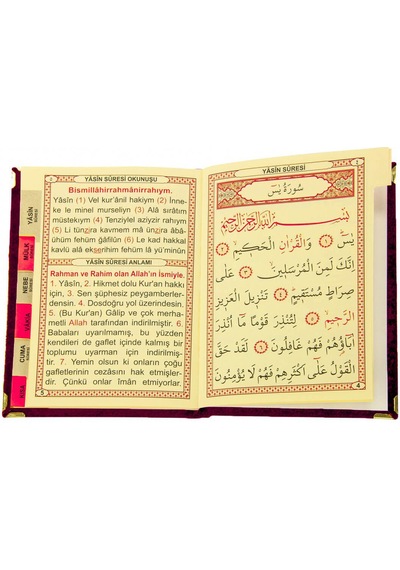 YÂSİN SÛRESİ OKUNUŞU
Bismillâhirrahmânirrahıym.
Yâsîn (1) Vel kur'ânil hakiym (2) İnne-
ke le minel murseliyn (3) Alâ sırâtım
müstekıym (4) Tenziylel aziyzir rahıym
(5) Li tünzira kavmem mâ ünzira âbâ-
ühüm fehüm ğâfilûn (6) Le kad hakkal
kavlü alâ ekserihim fehüm lâ yü'minûn
YÂSİN SÛRESİ ANLAMI
Rahman ve Rahim olan Allah'ın İsmiyle.
1. Yâsîn, 2. Hikmet dolu Kur'an hakkı
için, 3. Sen şüphesiz peygamberler-
densin. 4. Dosdoğru yol üzerindesin.
5. (Bu Kur'an) Gâlip ve çok merha-
metli Allah tarafından indirilmiştir. 6.
Babaları uyarılmamış, bu yüzden
kendileri de gaflet içinde kalmış bir
toplumu uyarman için indirilmiş-
tir. 7. Yemin olsun ki onların çoğu
gafletlerinin cezasını hak etmişler-
dir. Çünkü onlar îmân etmiyorlar.
YÂSİN SÛRESİ
MÜLK
NEBE
VAKIA
CUMA
YÂSİN SÛRESİ
سُورَةُ يٰسٓ
بِسْمِ اللّٰهِ الرَّحْمٰنِ الرَّحٖيمِ
يٰسٓ ﴿١﴾ وَالْقُرْاٰنِ الْحَكٖيمِ ﴿٢﴾
اِنَّكَ لَمِنَ الْمُرْسَلٖينَ ﴿٣﴾ عَلٰى
صِرَاطٍ مُسْتَقٖيمٍ ﴿٤﴾ تَنْزٖيلَ الْعَزٖيزِ
الرَّحٖيمِ ﴿٥﴾ لِتُنْذِرَ قَوْمًا مَٓا اُنْذِرَ
اٰبَٓاؤُ۬هُمْ فَهُمْ غَافِلُونَ ﴿٦﴾ لَقَدْ حَقَّ
الْقَوْلُ عَلٰٓى اَكْثَرِهِمْ فَهُمْ لَا يُؤْمِنُونَ
4